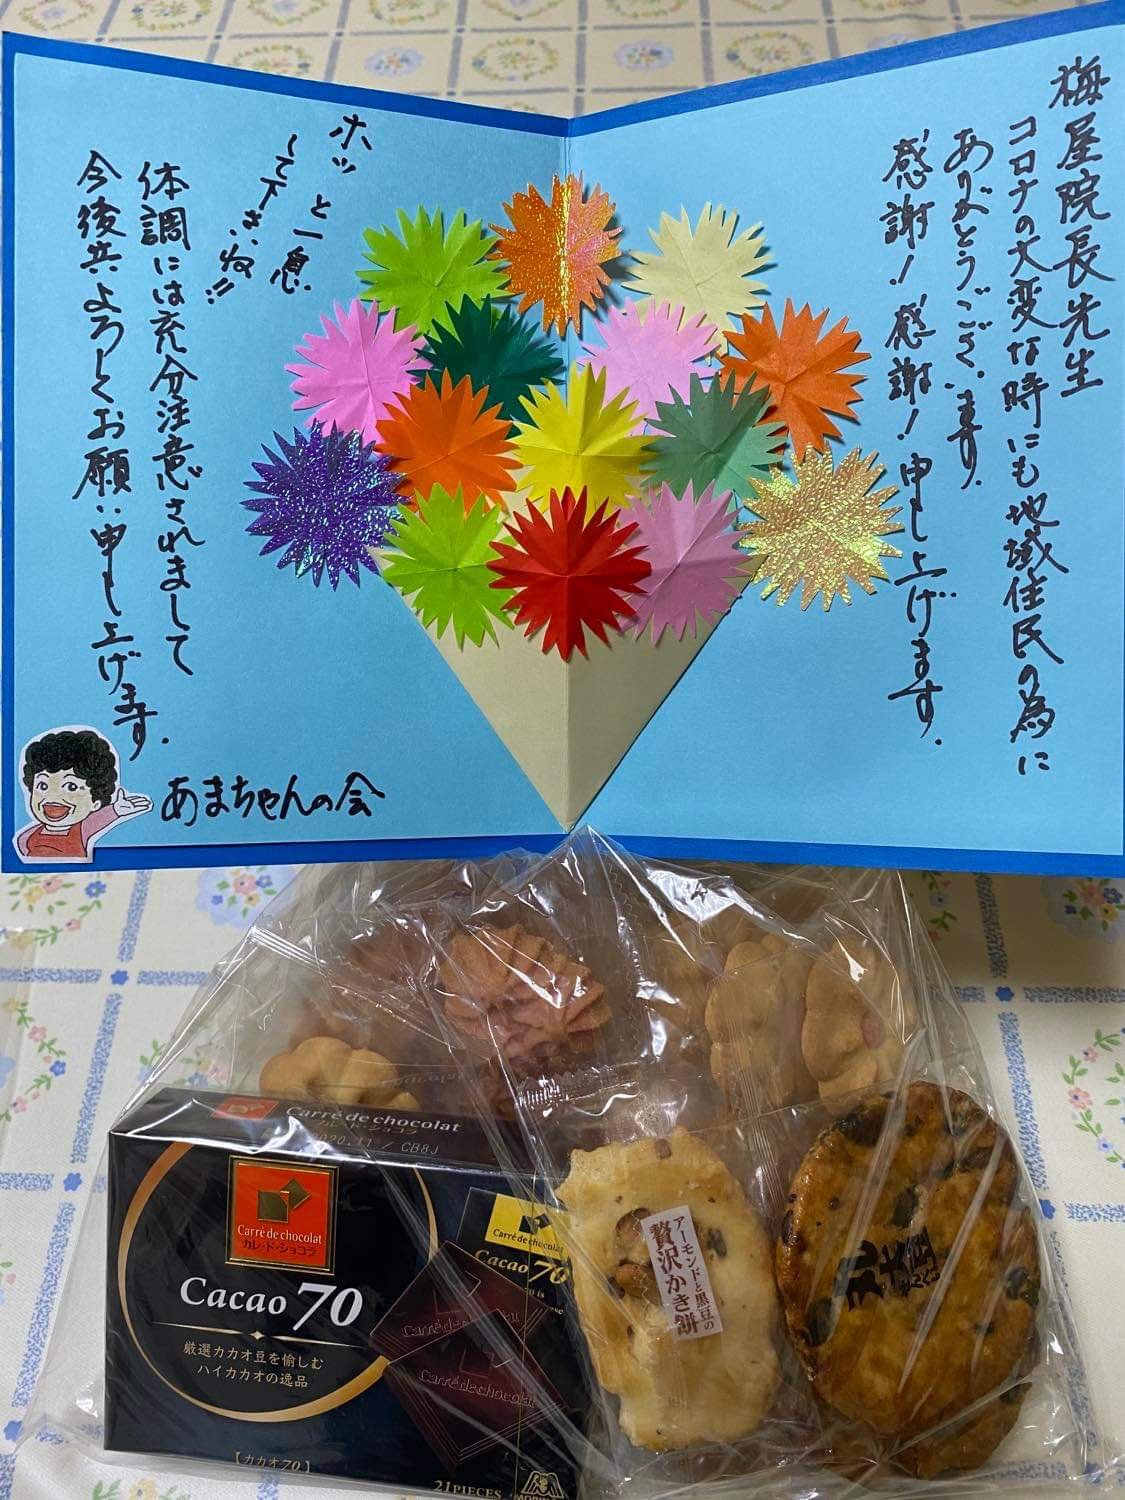 梅屋院長先生
コロナの大変な時にも地域住民の為に
ありがとうございます.
感謝!感謝!申し上げます.
ホッと一息
して下さいね!!
体調には充分注意されまして
今後共よろしくお願い申し上げます.
あまちゃんの会
Carré de chocolat
カレ・ド・ショコラ
2020.11 / CB8J
Carré de chocolat
カレ・ド・ショコラ
Cacao 70
厳選カカオ豆を愉しむ
ハイカカオの逸品
【カカオ70】
21PIECES
Carré de chocolat
Cacao 70
Carré de chocolat
Carré de chocolat
アーモンドと黒豆の
贅沢かき餅